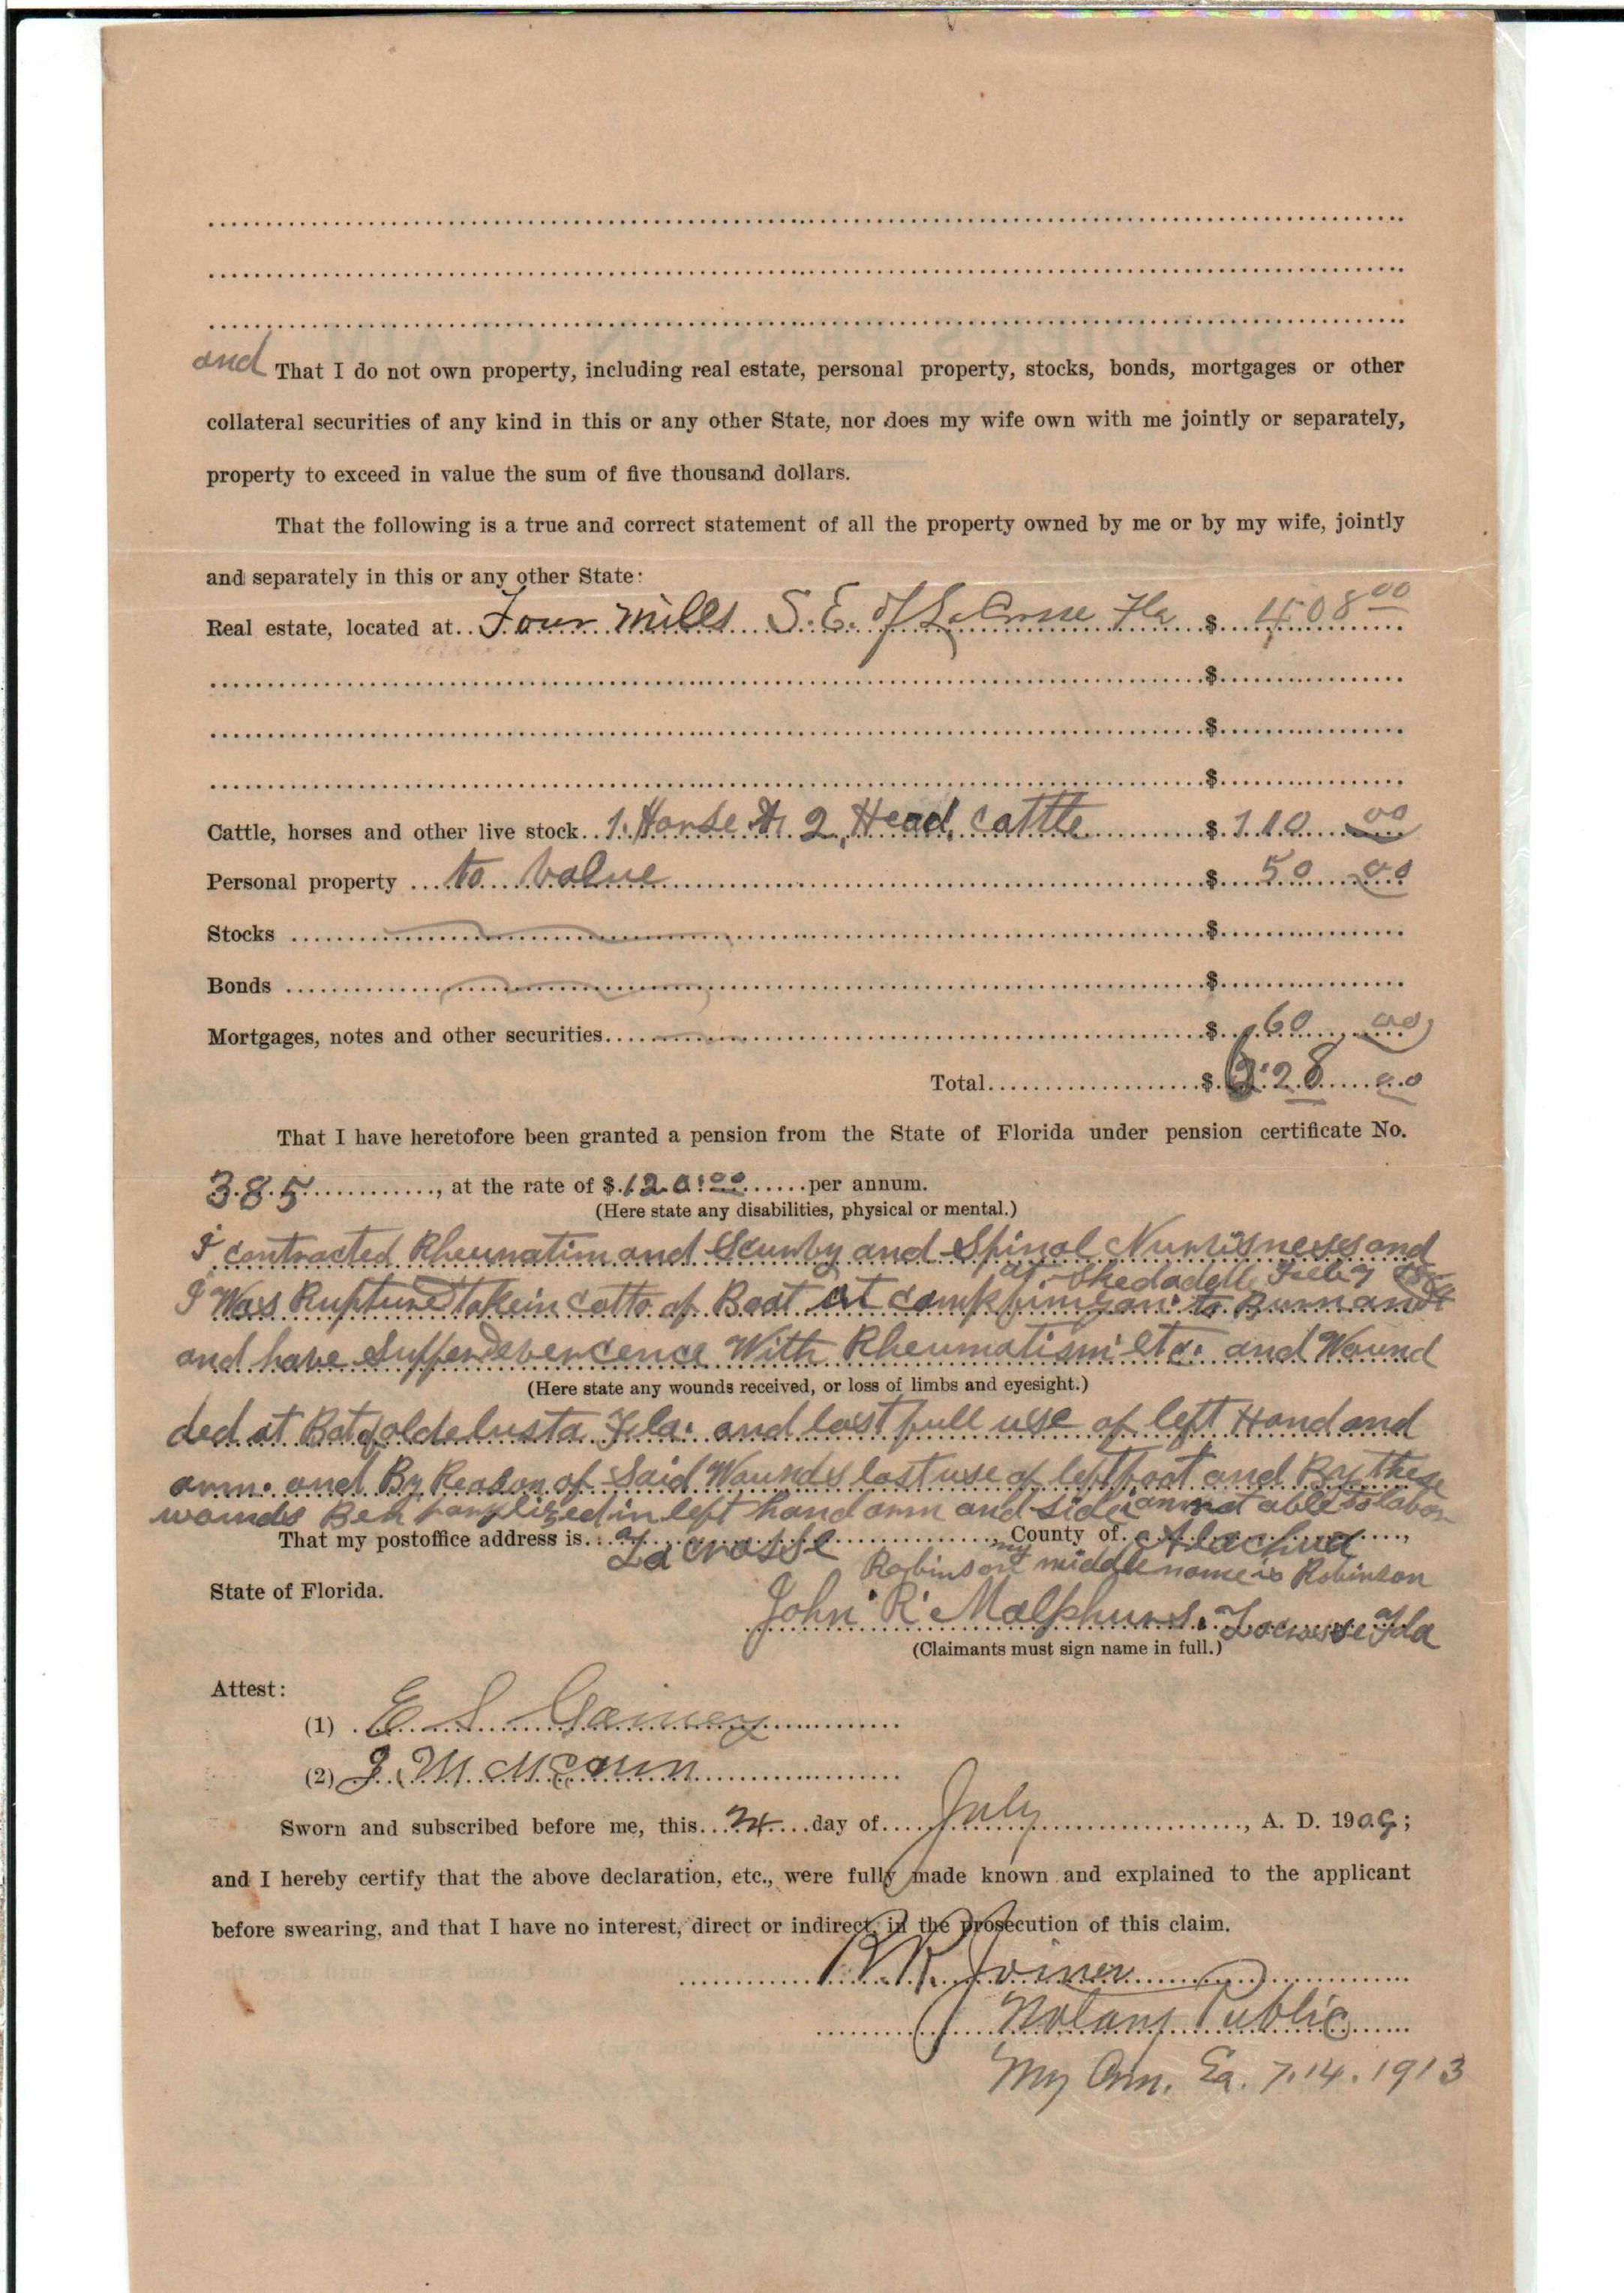 and That I do not own property, including real estate, personal property, stocks, bonds, mortgages or other
collateral securities of any kind in this or any other State, nor does my wife own with me jointly or separately,
property to exceed in value the sum of five thousand dollars.
That the following is a true and correct statement of all the property owned by me or by my wife, jointly
and separately in this or any other State:
Real estate, located at Four miles S.E. of Fla $ 408 00
$
$
$
Cattle, horses and other live stock 1 Horse 2 Head cattle $ 110 00
Personal property to Value $ 50 00
Stocks $
Bonds $
Mortgages, notes and other securities $ 60 00
Total $ 628 00
That I have heretofore been granted a pension from the State of Florida under pension certificate No.
385, at the rate of $ 120.00 per annum.
(Here state any disabilities, physical or mental.)
I contracted Rheumatim and Scurvy and Spinal and
at Skedaddle
I Was Rupture of Boat at camp to Burn
and have With Rheumatism etc. and Wound
(Here state any wounds received, or loss of limbs and eyesight.)
ded at Fla. and lost full use of left Hand and
arm. and By Reason of Said Wounds lost use of left foot and By these
wounds Ben in left hand arm and side am not able to labor
That my postoffice address is Lacrosse, County of Alachua,
my
Robinson middle name is Robinson
State of Florida.
John R Malphurs. Lacrosse Fla
(Claimants must sign name in full.)
Attest:
(1) E S Gainey
(2) J. M McCann
Sworn and subscribed before me, this 24 day of July, A. D. 1909;
and I hereby certify that the above declaration, etc., were fully made known and explained to the applicant
before swearing, and that I have no interest, direct or indirect, in the prosecution of this claim.
R. Joiner
Notary Public
My Com. Ex. 7.14.1913
STATE OF